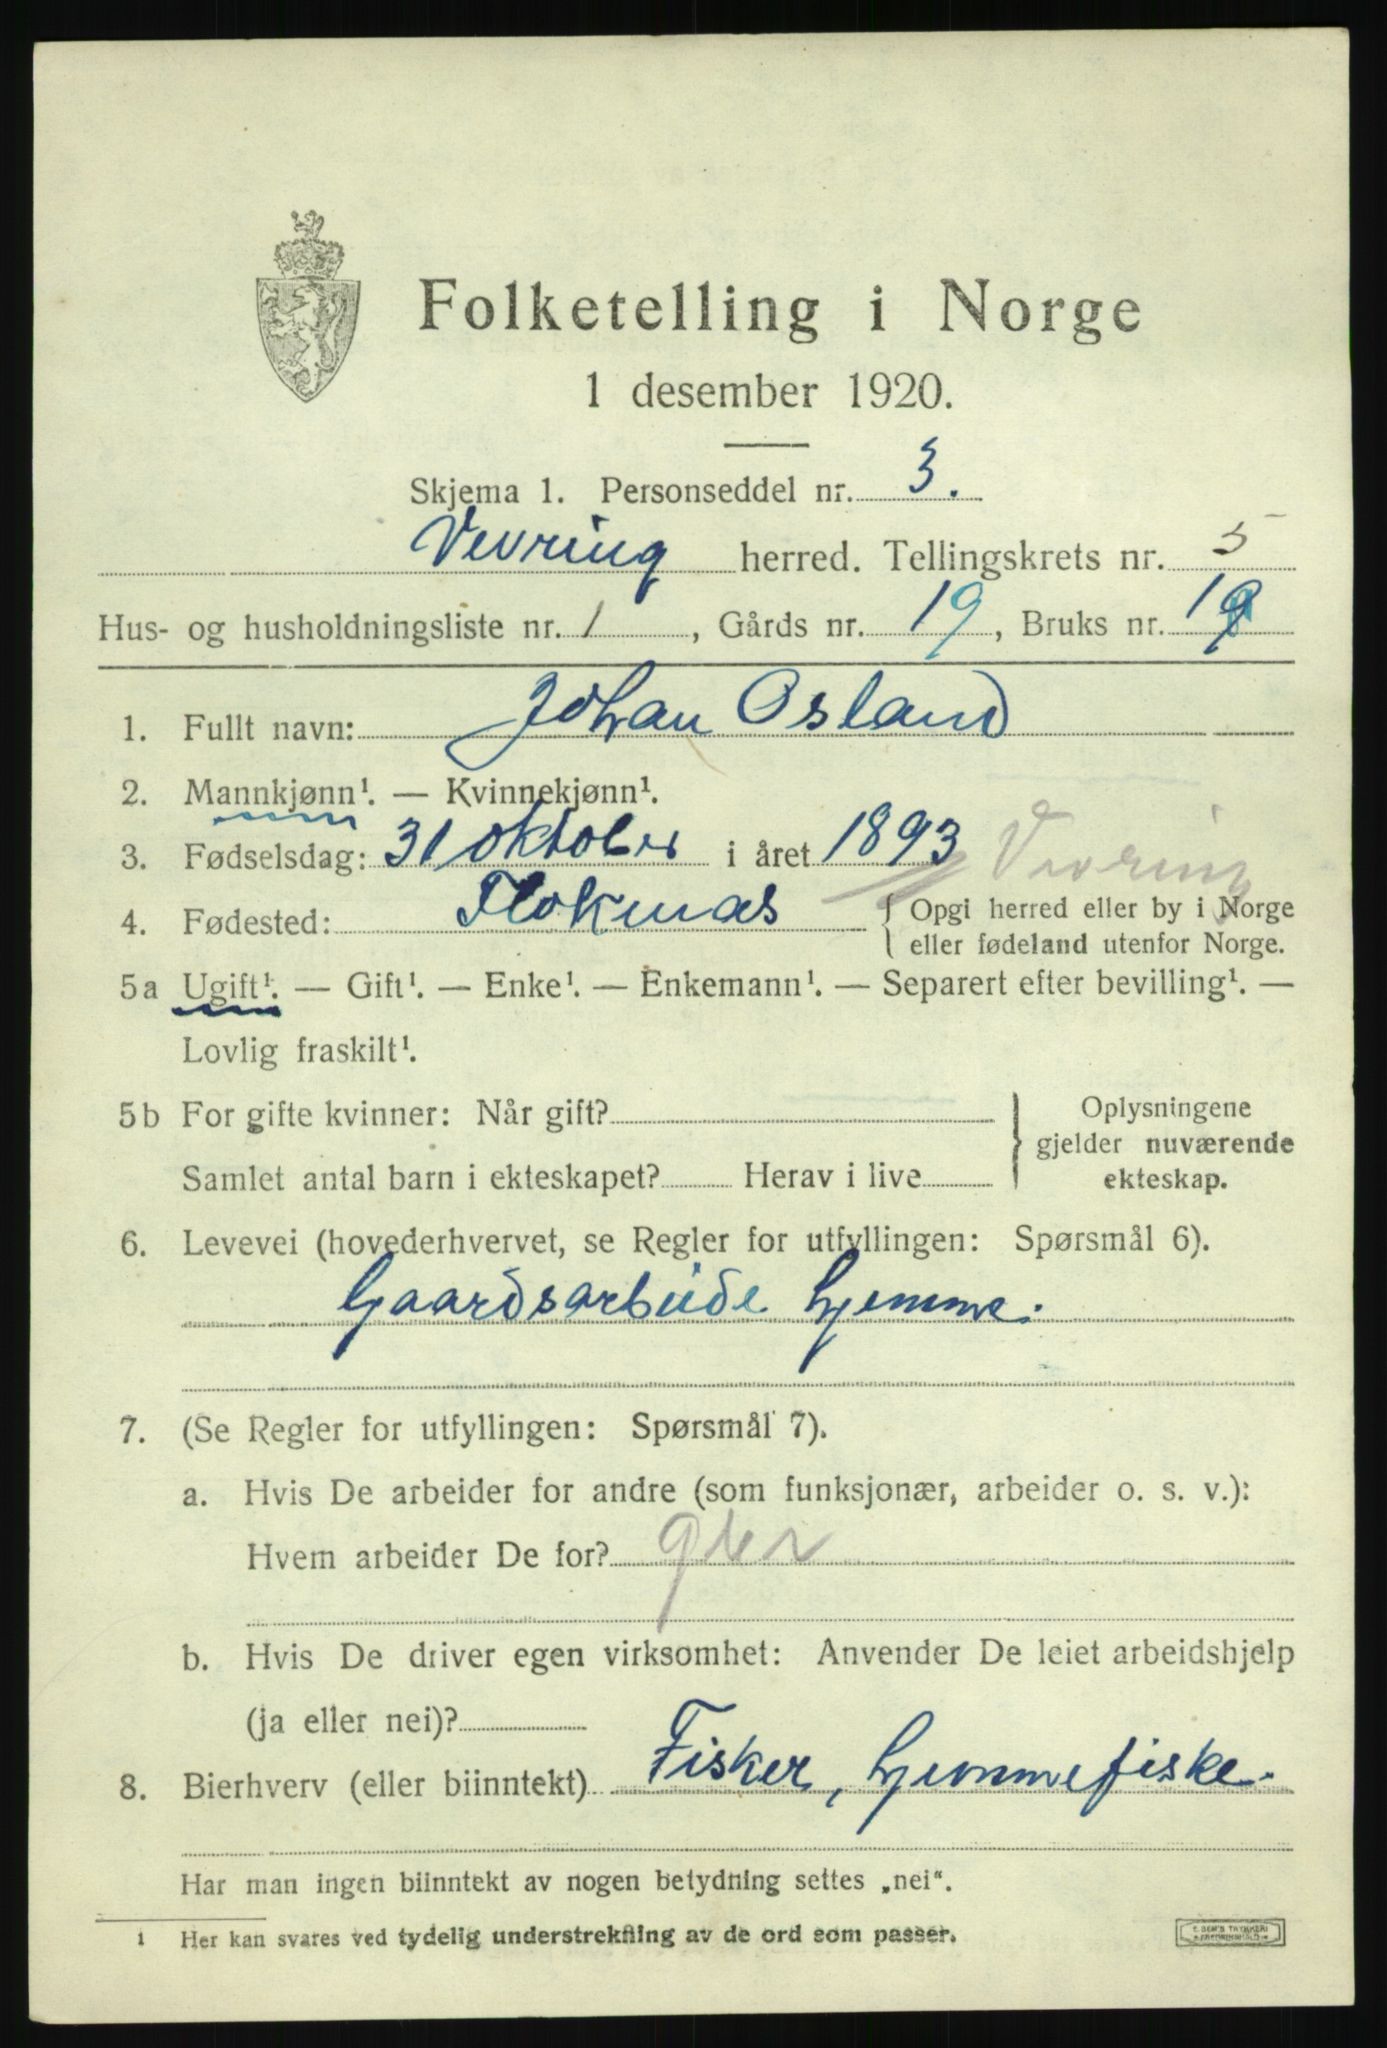 Folketelling i Norge
1 desember 1920.
Skjema 1. Personseddel nr. 3.
Vevring herred. Tellingskrets nr. 5
Hus- og husholdningsliste nr. 1, Gårds nr. 19, Bruks nr. 19
1. Fullt navn: Johan Osland
2. Mannkjønn¹. — Kvinnekjønn¹.
3. Fødselsdag: 31 oktober i året 1893 Vevring
4. Fødested: Flokenæs { Opgi herred eller by i Norge
eller fødeland utenfor Norge.
5a Ugift¹. — Gift¹. — Enke¹. — Enkemann¹. — Separert efter bevilling¹. —
Lovlig fraskilt¹.
5b For gifte kvinner: Når gift? } Oplysningene
gjelder nuværende
Samlet antal barn i ekteskapet? Herav i live ekteskap.
6. Levevei (hovederhvervet, se Regler for utfyllingen: Spørsmål 6).
Gaardsarbeide hjemme.
7. (Se Regler for utfyllingen: Spørsmål 7).
a. Hvis De arbeider for andre (som funksjonær, arbeider o. s. v.):
Hvem arbeider De for?
b. Hvis De driver egen virksomhet: Anvender De leiet arbeidshjelp
(ja eller nei)?
8. Bierhverv (eller biinntekt) Fisker, hjemmefiske.
Har man ingen biinntekt av nogen betydning settes „nei“.
¹ Her kan svares ved tydelig understrekning av de ord som passer.